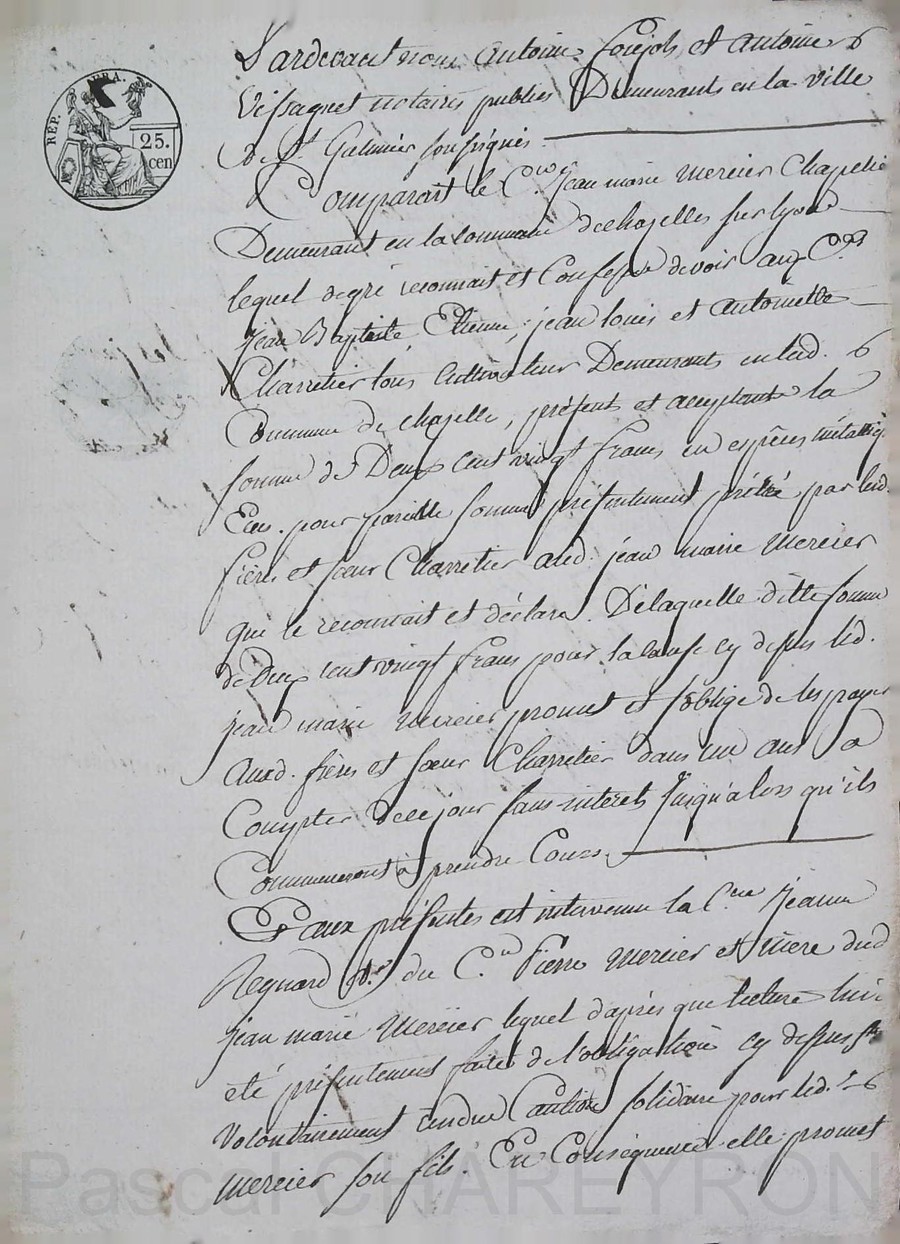 RÉP. FRA.
25.
cen
Pardevant nous Antoine Foujols et Antoine
Vissaguet notaires publics Demeurants en la ville
de St. Galmier soussignés.
Comparait le Cen. Jean marie Mercier Chapelie
Demeurant en la Commune de chazelles sur lyon
lequel de gré reconnait et Confesse devoir aux Cens
Jean Baptiste, Etienne, jean louis et antoinette
Charretier tous Cultivateur Demeurants en lad.
Commune de chazelle, présent et acceptant la
somme de Deux cent vingt francs en espèces métalliq.
Eue. pour pareille somme présentement prétée par lesd.
frères et sœur Charretier aud. jean marie Mercier
que le reconnait et déclare. De laquelle ditte somme
de Deux cent vingt francs pour la cause cy dessus led.
jean marie Mercier promet et s'oblige de les payer
auxd. frères et sœur Charretier dans un ans a
Compter de ce jour sans interets jusqu'alors qu'ils
Commenceront à prendre Cours.
Et aux présentes est intervenue la Cne. Jeanne
Reynard ve. du Cen. Pierre Mercier et Mère dud
jean marie Mercier lequel d'après que lecture lui a
eté présentement faite de l'obligation cy dessus s'est
Volontairement rendue Caution solidaire pour led.
Mercier son fils. En Conséquence elle promet
Pascal CHAREYRON